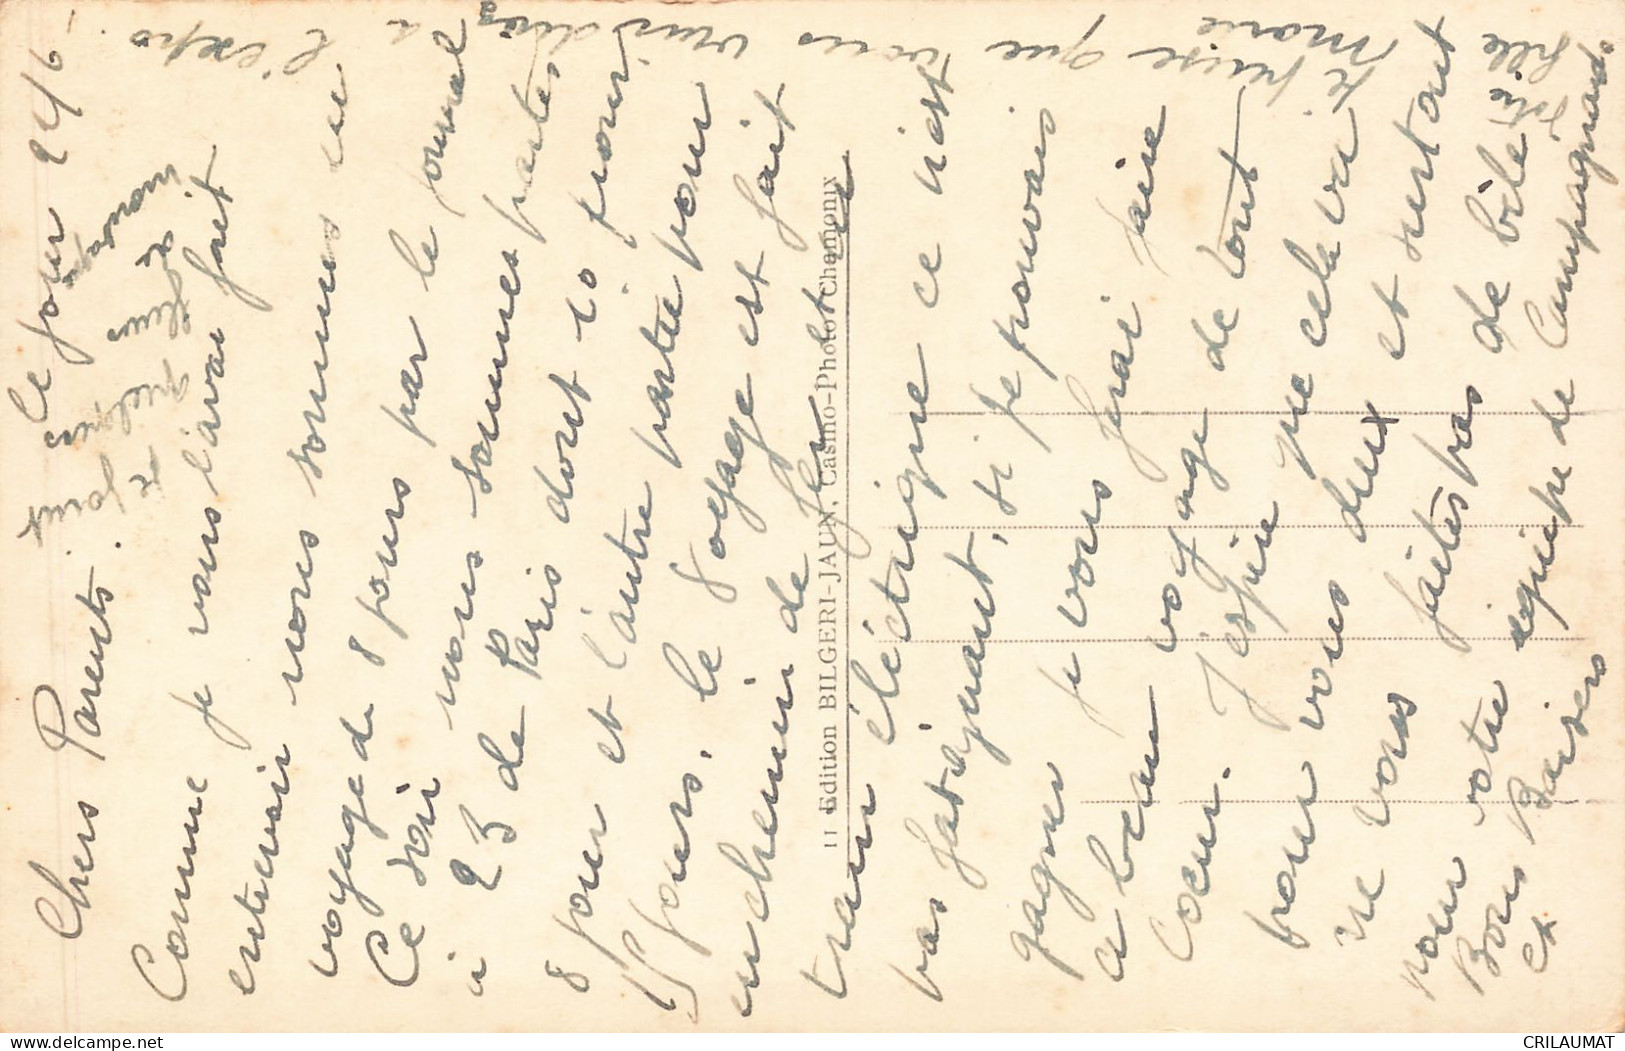 Ce jour 24/6
Chers Parents.
Comme je vous l'avai fait
entrevoir nous sommes en
voyage de 8 jours par le journal
Ce soir nous sommes partes
à 23 de Paris dont 10 pour
8 jour et l'autre partie pour
15 jours. le voyage est fait
en chemin de fer et en
train éléctrique ce n'est
pas fatiguant, si je pouvais
gagner je vous ferai faire
ce beau voyage de tout
coeur. J'espère que cela va
pour vous deux et surtout
ne vous faites pas de bile
pour votre equipe de Campagnards
Bons Baisers
et
fille
Marie
Je pense que vous
à l'expo.
ce joint
fleurs de
11 Edition BILGERI-JAUN, Casino-Photo Chamonix
delcampe.net
CRILAUMAT